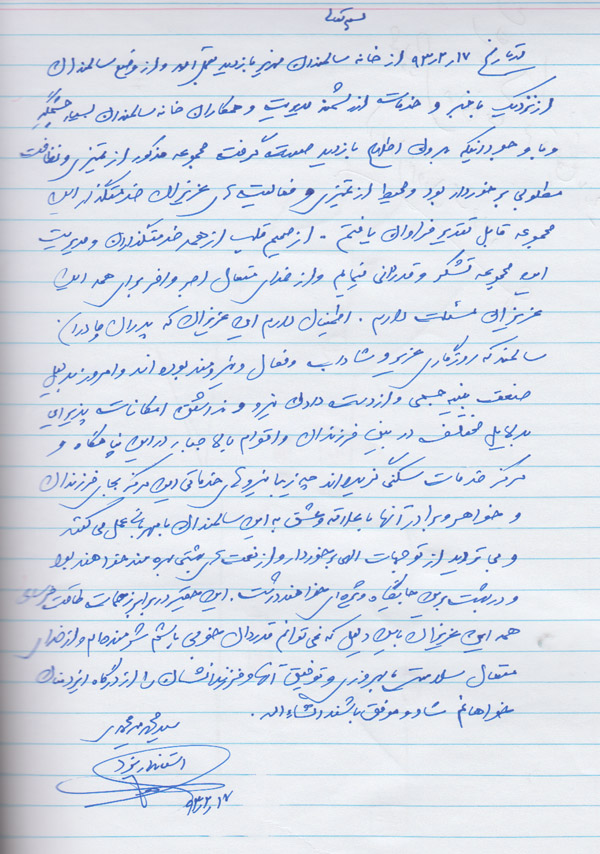 بسمه تعالی
در تاریخ ۹۳٫۲٫۱۷ از خانه سالمندان مهریز بازدید بعمل آمد و از وضع سالمندان
از نزدیک با خبر و خدمات ارزشمند مدیریت و همکاران خانه سالمندان بسیار چشمگیر
و با وجودیکه بدون اطلاع بازدید صورت گرفت مجموعه مذکور از تمیزی و نظافت
مطلوبی برخوردار بود و محیط از تمیزی و فعالیت های عزیزان خدمتگذار این
مجموعه قابل تقدیر فراوان یافتم . از صمیم قلب از همه خدمتگذاران و مدیریت
این مجموعه تشکر و قدردانی مینمایم و از خدای متعال اجر وافر برای همه این
عزیزان مسئلت دارم . اطمینان دارم این عزیزان که پدران و مادران
سالمند که روزگاری عزیز و شاداب و فعال و نیرومند بوده اند و امروز بدلیل
ضعف بنیه جسمی و از دست دادن نیرو و نداشتن امکانات پذیرایی
بدلایل مختلف در بین فرزندان و اقوام بالاجبار در این پناهگاه و
مرکز خدمات سکنی گزیده اند چه زیبا نیروهای خدماتی این مرکز بجای فرزندان
و خواهر و برادر آنها با علاقه و عشق به این سالمندان با مهربانی عمل می کنند
و بی تردید از توجهات الهی برخوردار و از نعمت های بهشتی بهره مند خواهند بود
و در بهشت برین جایگاه ویژه ای خواهند داشت . این حقیر در برابر زحمات طاقت فرسای
همه این عزیزان باین دلیل که نمی توانم قدردان خوبی باشم شرمنده ام و از خدای
متعال سلامتی با بهروزی و توفیق آنها و فرزندانشان را از درگاه ایزد منان
خواهانم شاد و موفق باشند انشاءاله .
سید محمد میرمحمدی
استاندار یزد
۹۳٫۲٫۱۷